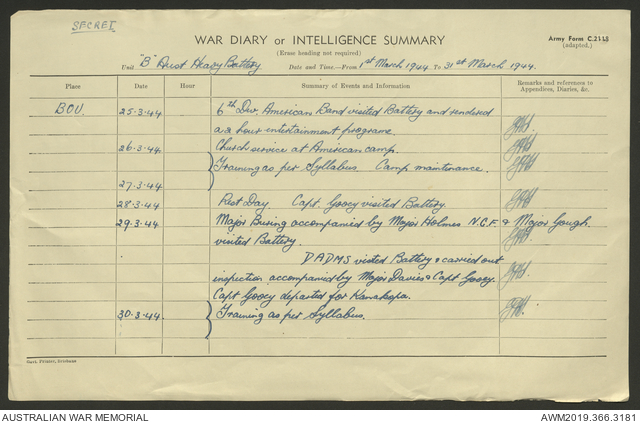 SECRET
WAR DIARY or INTELLIGENCE SUMMARY
(Erase heading not required)
Army Form C.2118
(adapted.)
Unit "B" Aust Heavy Battery Date and Time.—From 1st March 1944 To 31st March 1944.
Place Date Hour Summary of Events and Information Remarks and references to Appendices, Diaries, &c.
BOU. 25-3-44 6th Div. American Band visited Battery and rendered
a 2 hour entertainment programe.
26-3-44 Church service at American camp.
Training as per Syllabus. Camp maintenance.
27-3-44
28-3-44 Rest Day. Capt. Gooey visited Battery.
29-3-44 Major Buring accompanied by Major Holmes N.G.F. & Major Gough.
visited Battery.
DADMS visited Battery & carried out
inspection accompanied by Major Davies & Capt Gooey.
Capt Gooey departed for Kanakopa.
30-3-44 Training as per Syllabus.
Govt. Printer, Brisbane
AUSTRALIAN WAR MEMORIAL
AWM2019.366.3181